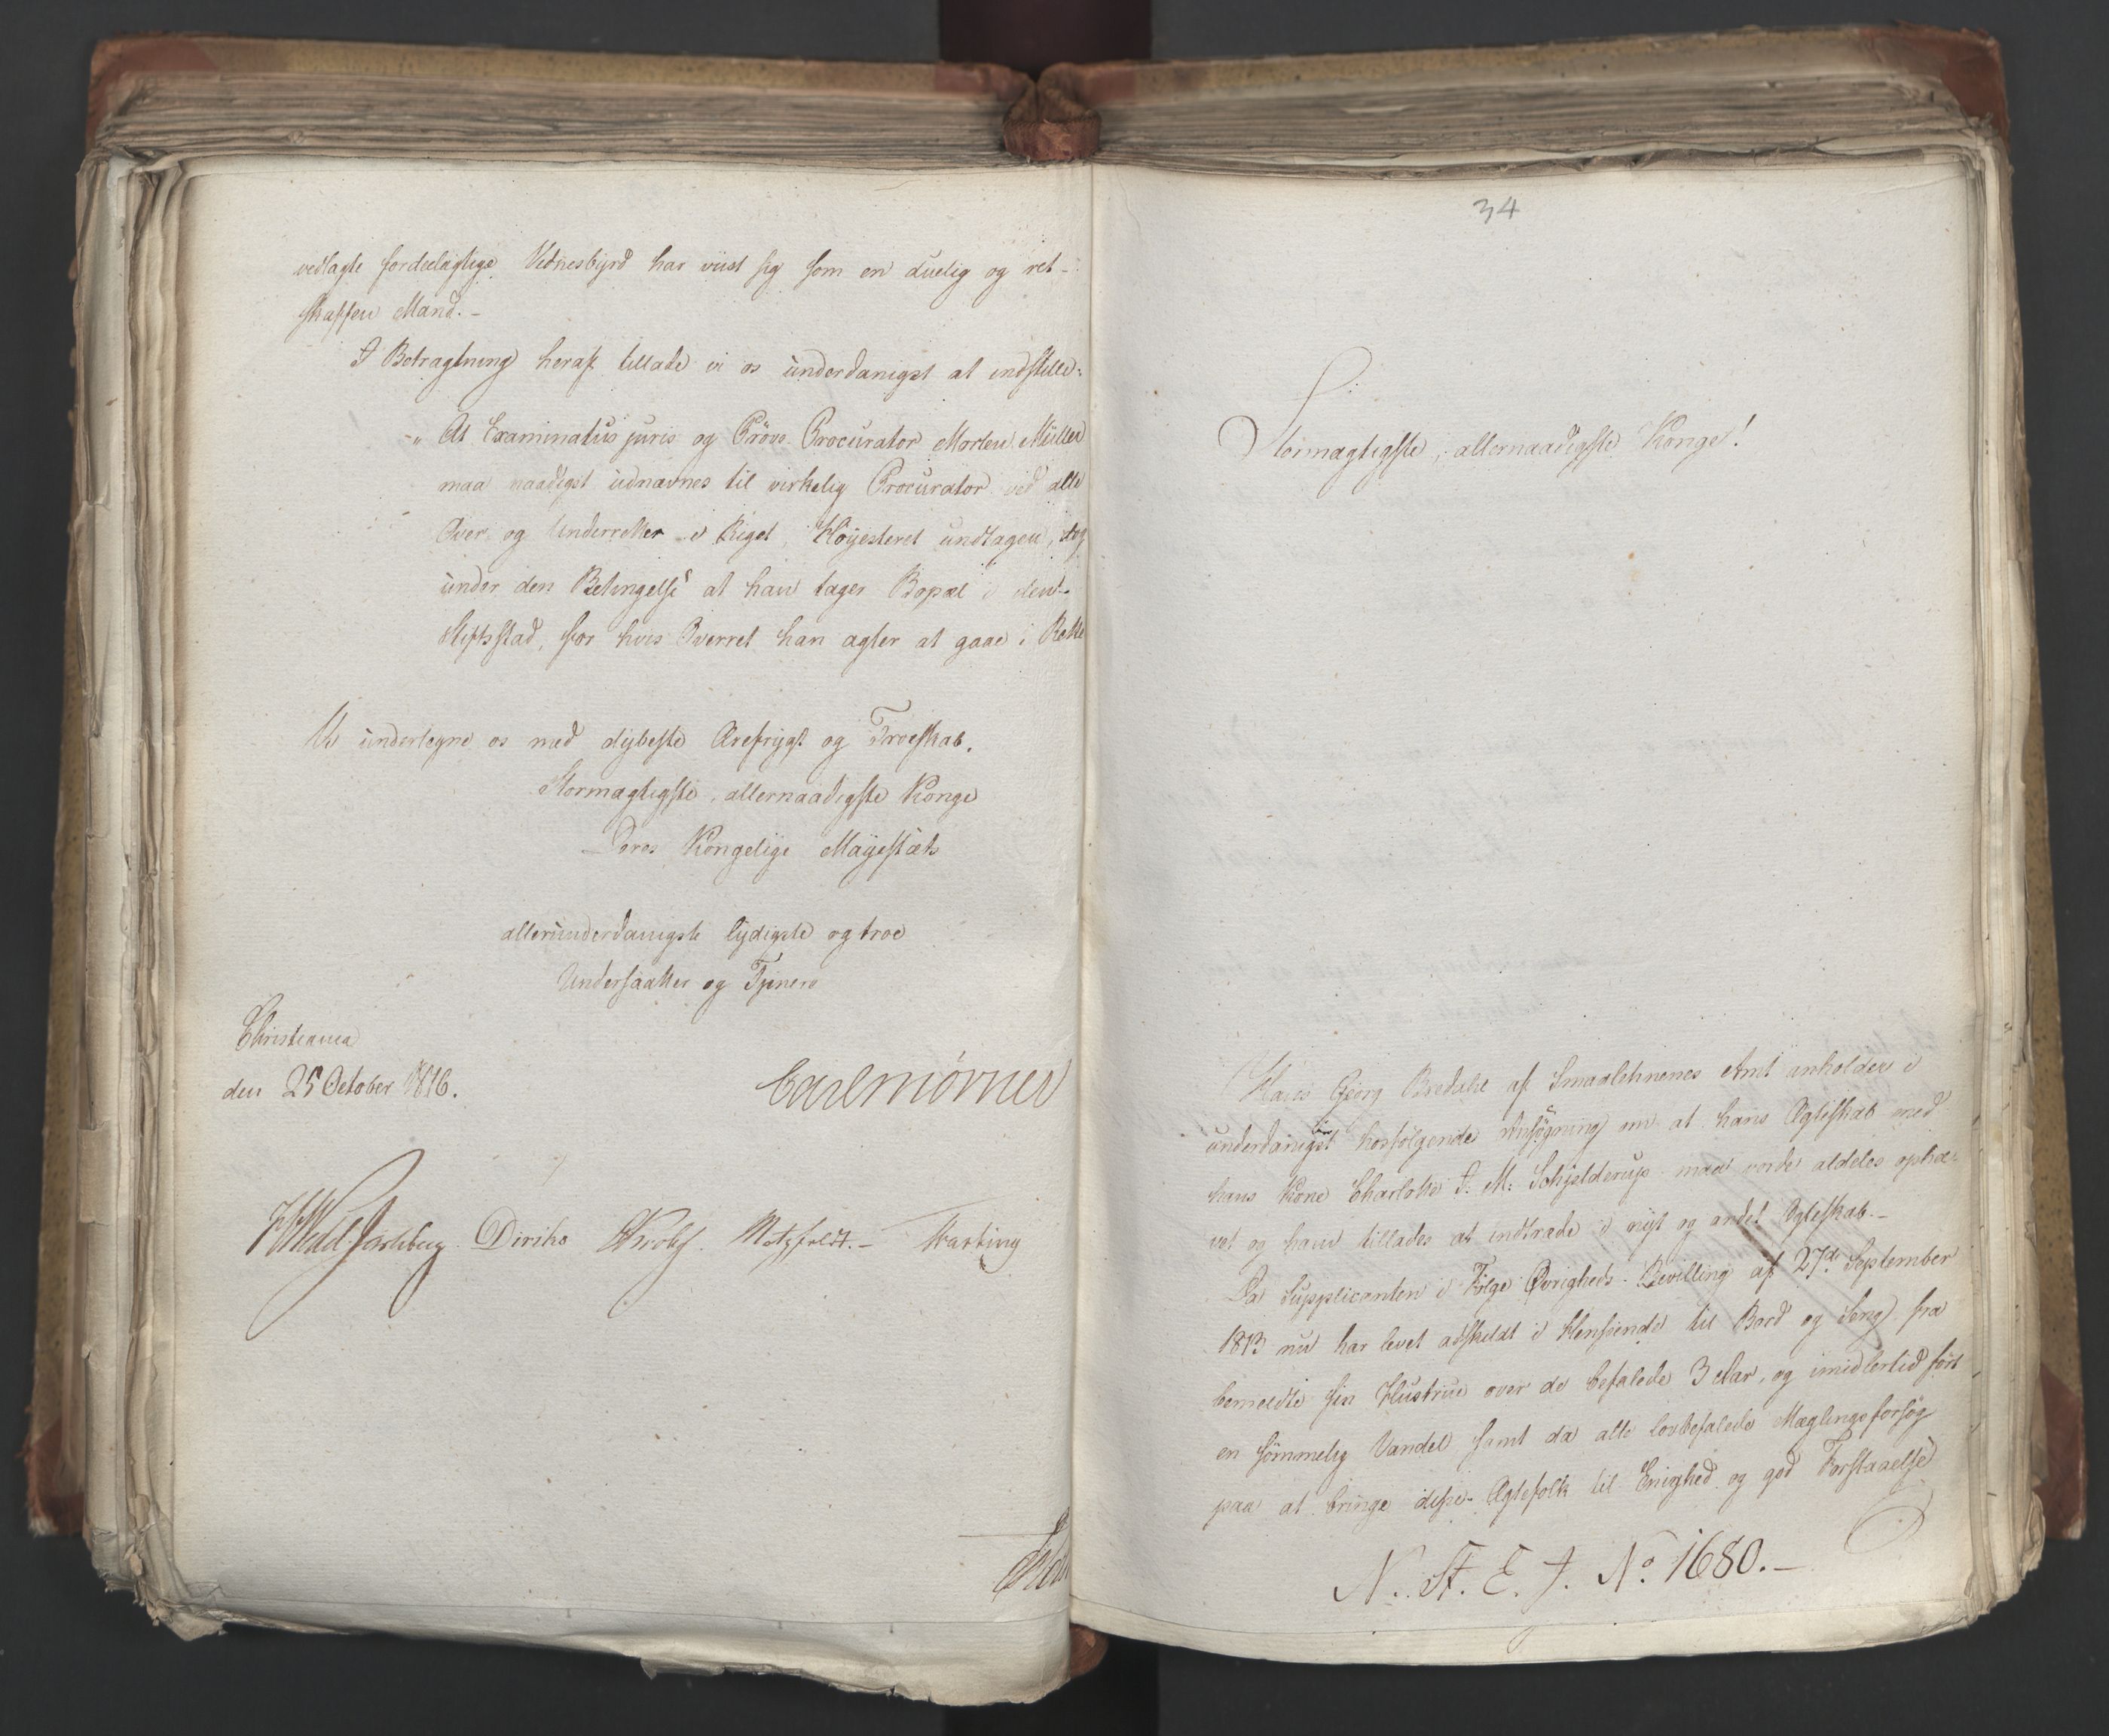 vedlagte fordeelagtige Vidnesbyrd har viist sig som en duelig og ret-
skaffen Mand. -
I Betragtning heraf tillade vi os underdanigst at indstille:
" At Examinatus juris og Pröve-Procurator Morten Müller
maa naadigst udnævnes til virkelig Procurator ved alle
Over og Underretter i Riget, Höyesteret undtagen, dog
under den Betingelse at han tager Bopæl i den
Stiftsstad, for hvis Overret han agter at gaae i Rette
Vi undertegne os med dybeste Ærefrygt og Troeskab.
Stormægtigste, allernaadigste Konge
Deres Kongelige Mayestæts
allerunderdanigste lydigste og troe
Undersaatter og Tjenere
Christiania
den 25 October 1816.
Carl Mörner
Wedel Jarlsberg Diriks Krohg. Motzfeldt. - Harting
34
Stormægtigste, allernaadigste Konge!
Hans Georg Bredahl af Smaalehnenes Amt anholder i
underdanigst hosfölgende Ansögning om at hans Ægteskab med
hans Kone Charlotte I. M. Schjelderup maa vorde aldeles ophæ-
vet og ham tillades at indtræde i nyt og andet Ægteskab. -
Da Supplicanten i Fölge Övrigheds-Bevilling af 27de September
1813 nu har levet adskildt i Henseende til Bord og Seng fra
bemeldte sin Hustrue over de befalede 3 Aar, og imidlertid fört
en sömmelig Vandel samt da alle lovbefalede Mæglingsforsög
paa at bringe disse Ægtefolk til Enighed og god Forstaaelse
N. St. E. J. No 1680. -